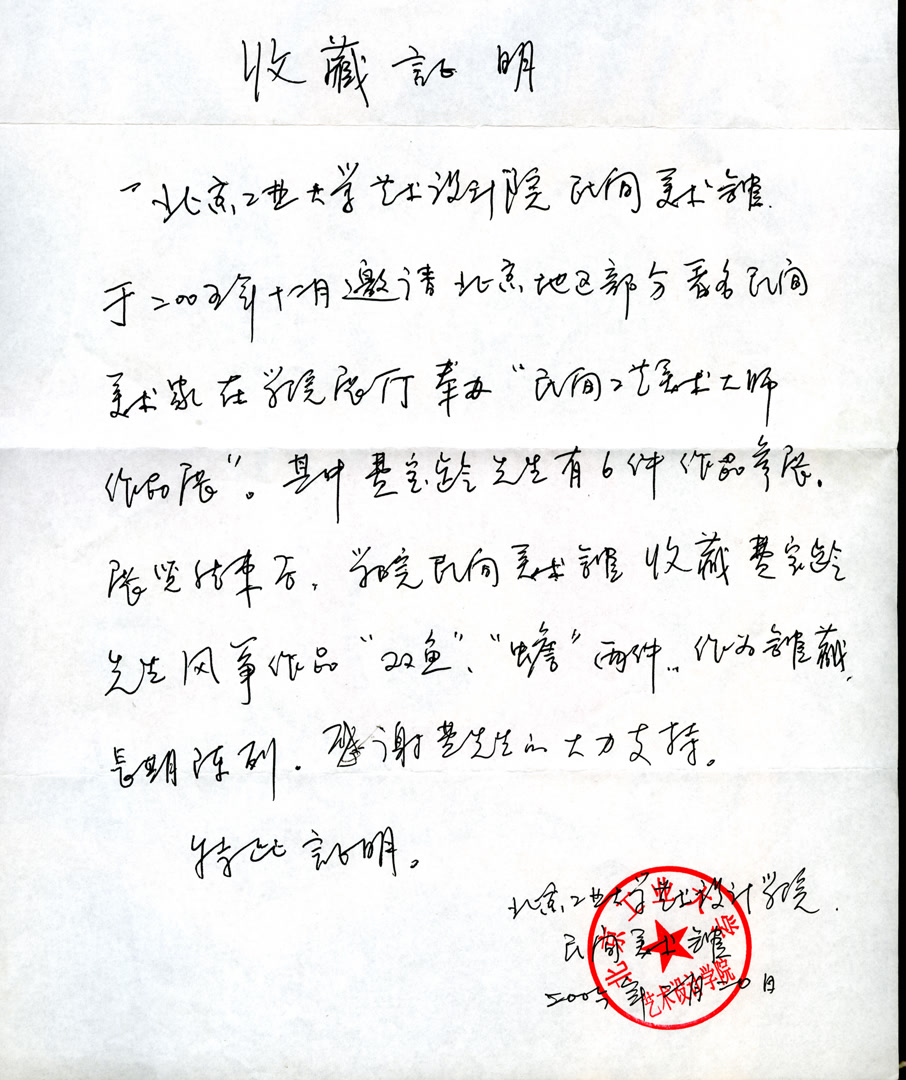 收藏証明
北京工业大学艺术设计院民间美术馆
于二00五年十二月邀请北京地区部分著名民间
美术家在学院展厅举办“民间工艺美术大师
作品展”。其中费宝龄先生有6件作品参展。
展览结束后，学院民间美术馆收藏费宝龄
先生风筝作品“双鱼”、“蟾”两件，作为馆藏，
长期陈列。感谢费先生的大力支持。
特此証明。
北京工业大学艺术设计学院
民间美术馆
2005年 日
北京工业大学
艺术设计学院